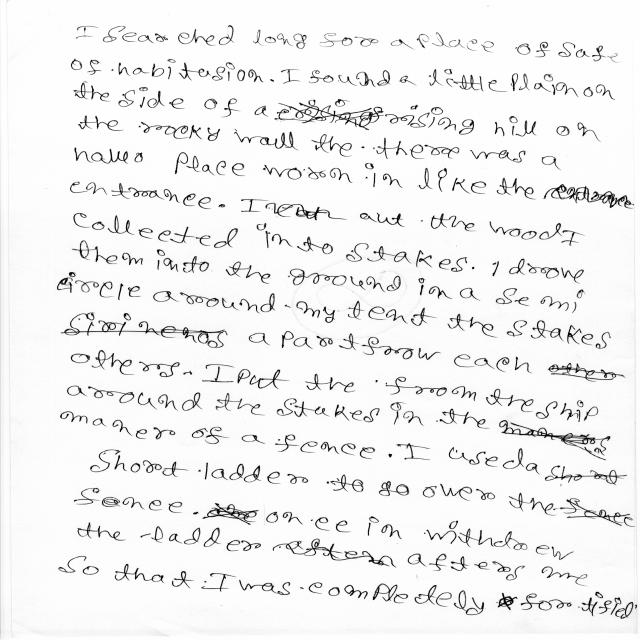 I searched long for a place of safe
of habitasion. I found a little plain on
the side of a rising hill on
the rocky wall the there was a
hallo place worn in like the
entrance. I cut the wood I
collected into stakes. I drove
them into the ground in a semi
circle around my tent the stakes
a part frow each
others. I put the from the ship
around the stakes in the
maner of a fence. I used a
short ladder to go over the
fence. once in withdrew
the ladder afters me
so that I was completely fortified